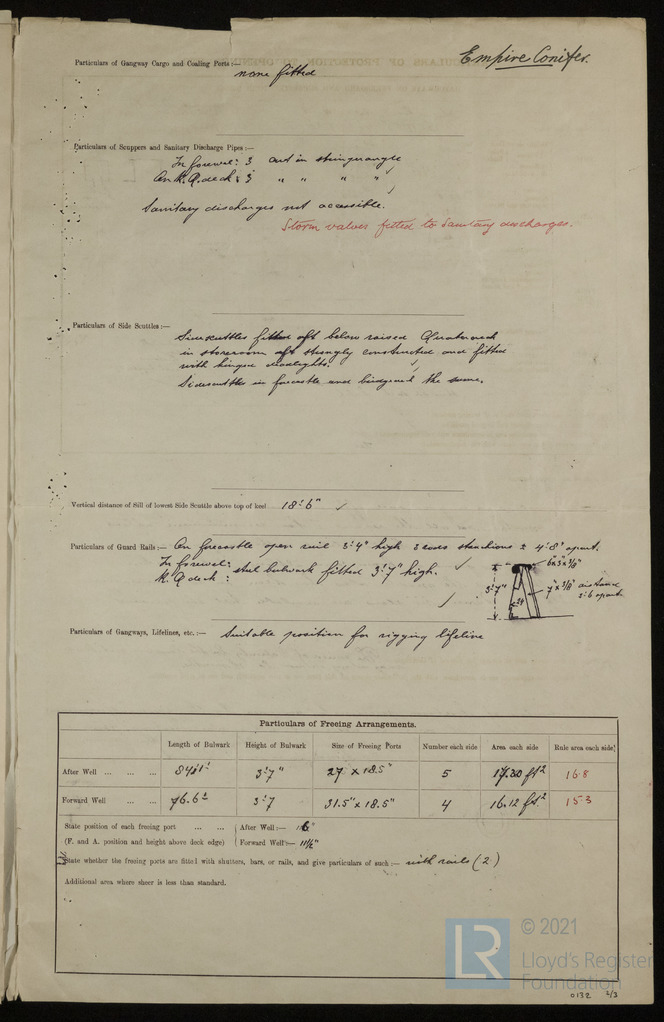 Empire Conifer.
Particulars of Gangway Cargo and Coaling Ports :—
none fitted
Particulars of Scuppers and Sanitary Discharge Pipes :—
In forewell: 3 cut in stringerangle
On R. Q. deck : 3 " " " "
Sanitary discharges not accessible.
Storm valves fitted to Sanitary discharges.
Particulars of Side Scuttles :—
Sidescuttles fitted aft below raised Quarterdeck
in storeroom aft strongly constructed and fitted
with hinged deadlights.
Sidescuttles in forecastle and bridgeend the same.
Vertical distance of Sill of lowest Side Scuttle above top of keel 18'-6"
Particulars of Guard Rails :— On forecastle open rail 3'-4" high 3 rows stanchions ± 4'-8" apart.
In forewell:
R. Q deck : steel bulwark fitted 3'-7" high.
3'-7"
Particulars of Gangways, Lifelines, etc. :— Suitable position for rigging lifeline
Particulars of Freeing Arrangements.
Length of Bulwark Height of Bulwark Size of Freeing Ports Number each side Area each side Rule area each side
After Well ... ... ... 3'-7" 27" x 18.5" 5 ft² 16.8
Forward Well ... ... 76.6 3'-7 31.5" x 18.5" 4 16.12 ft² 15.3
State position of each freeing port ... ... After Well :—
(F. and A. position and height above deck edge) Forward Well :— 11½"
State whether the freeing ports are fitted with shutters, bars, or rails, and give particulars of such :— with rails (2)
Additional area where sheer is less than standard.
LR
© 2021
Lloyd's Register
Foundation
0132 2/3